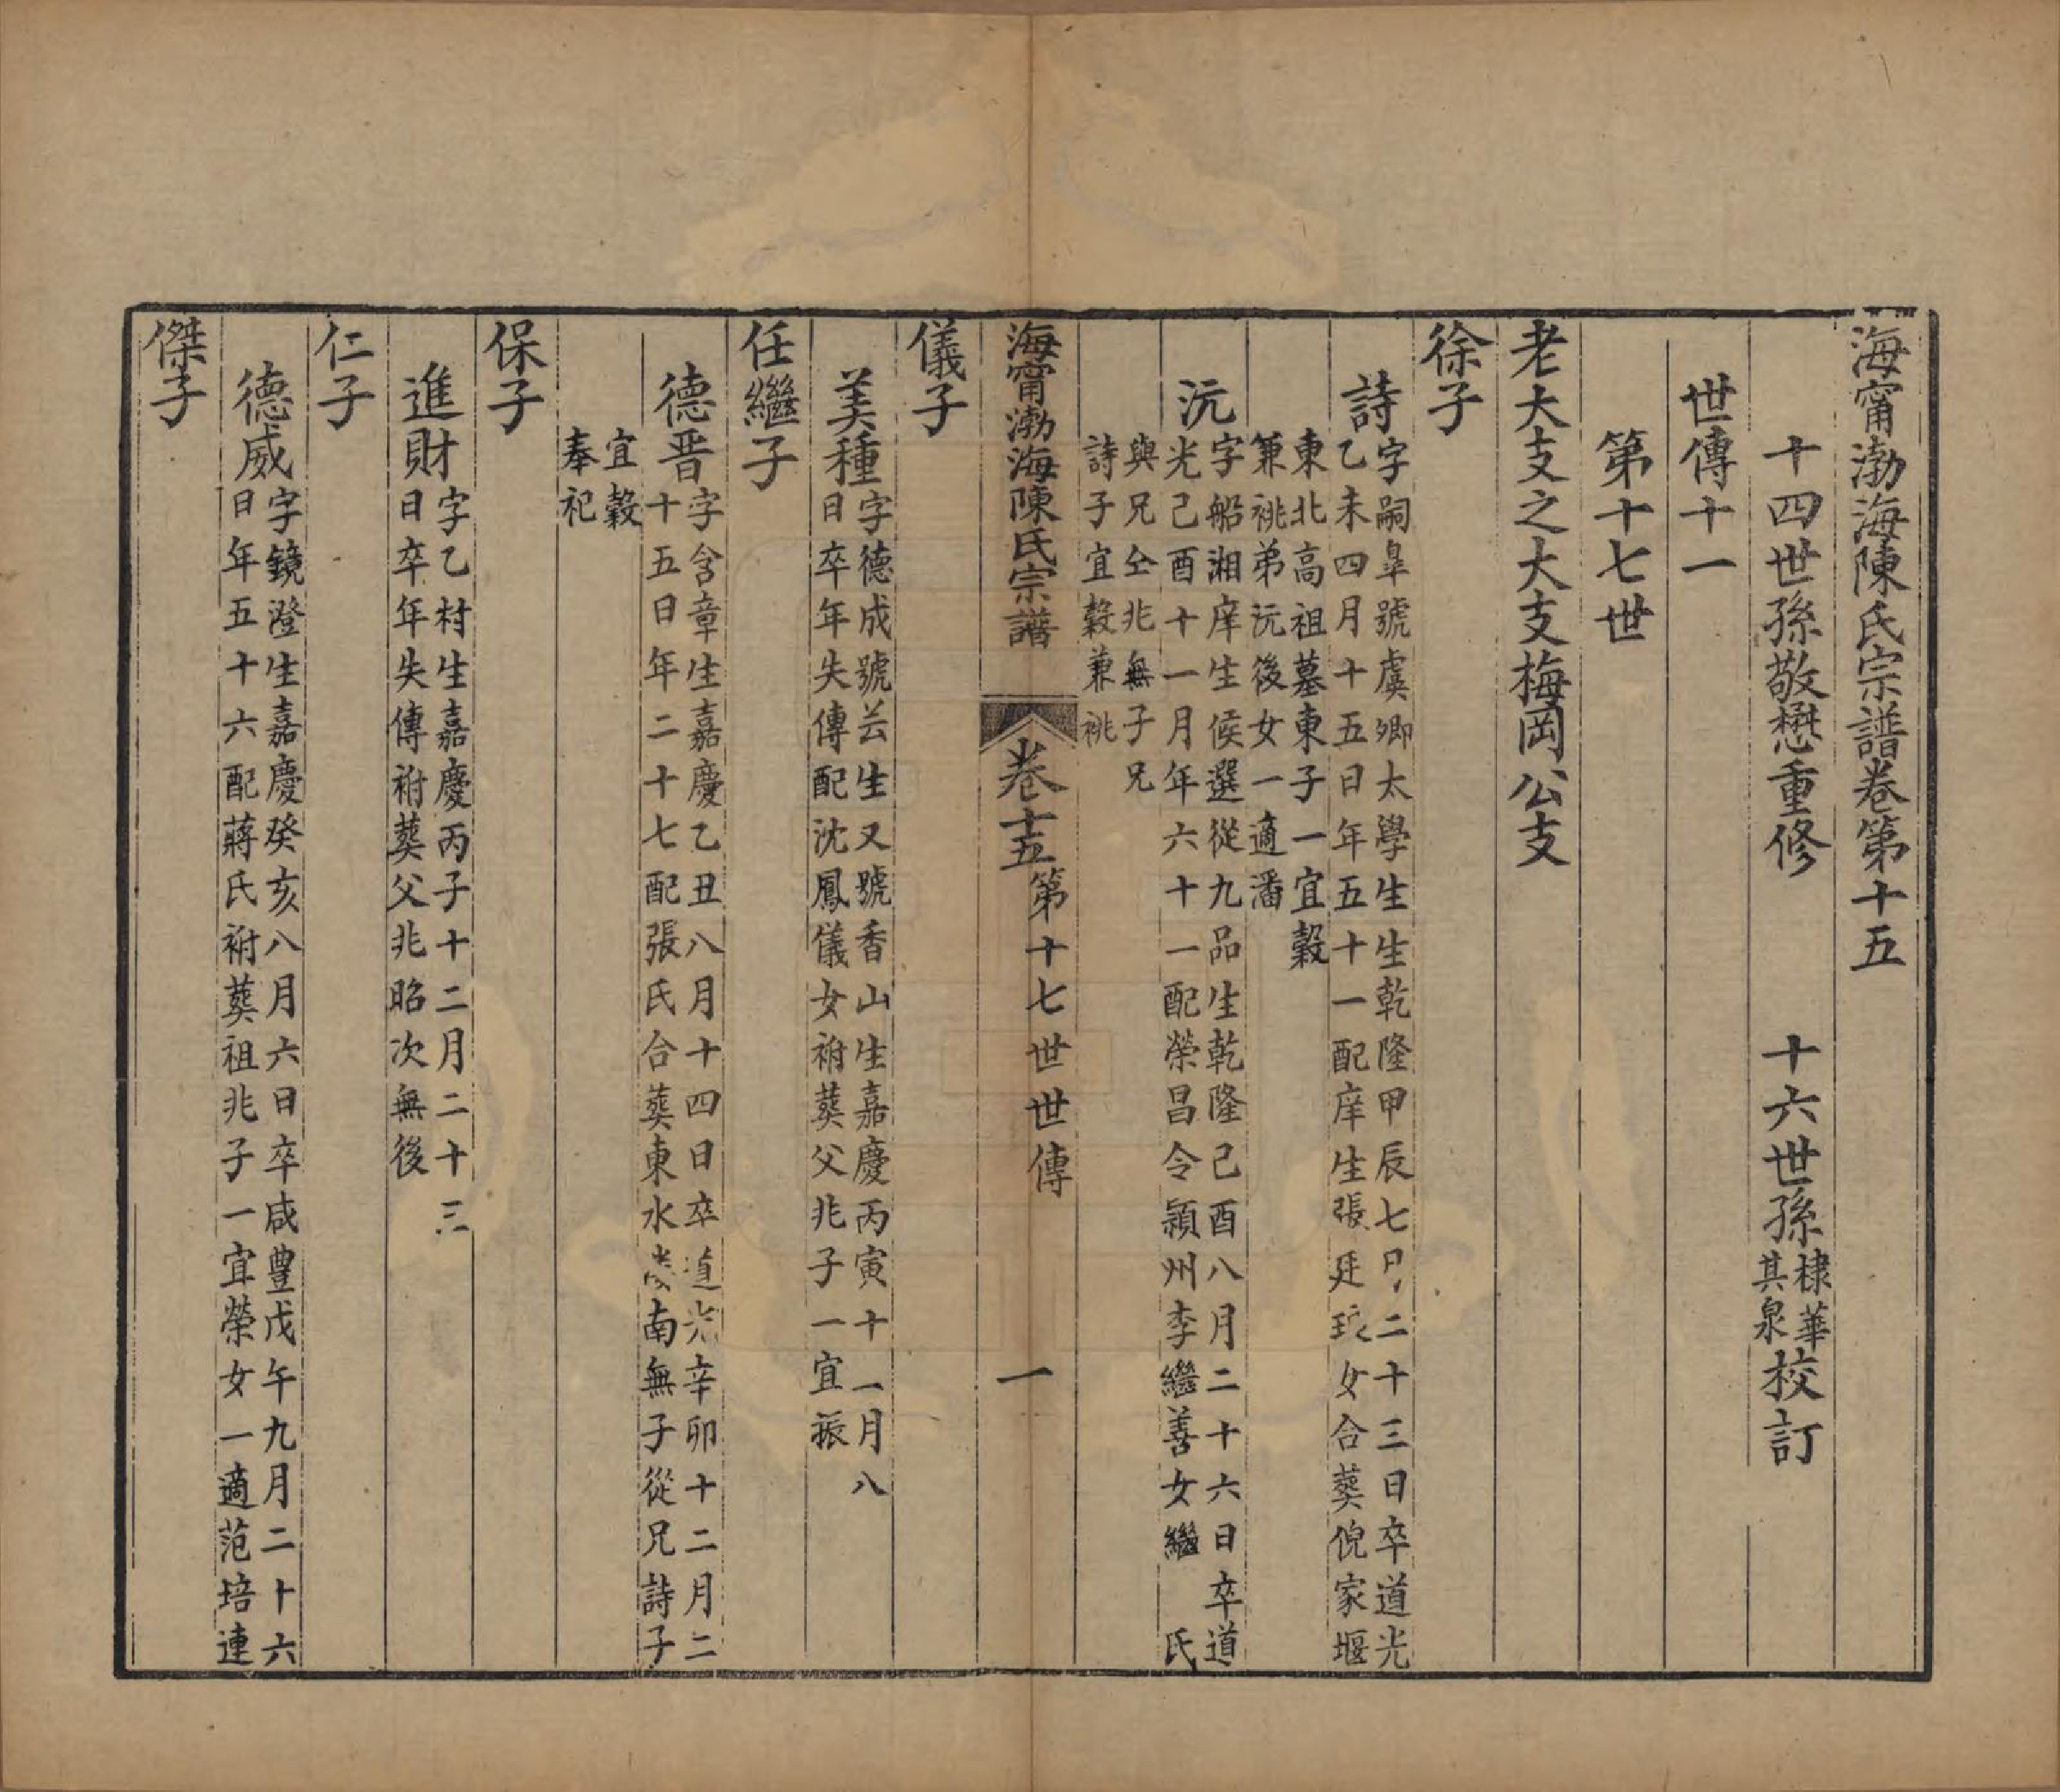 海甯渤海陳氏宗譜卷第十五
十四世孫敬懋重修　十六世孫棣華其泉校訂
世傳十一
第十七世
老大支之大支梅岡公支
徐子
詩
字嗣臯號虞卿太學生生乾隆甲辰七月二十三日卒道光
乙未四月十五日年五十一配庠生張廷女合葬倪家堰
東北高祖墓東子一宜穀
兼祧弟沅後女一適潘
沅
字船湘庠生候選從九品生乾隆己酉八月二十六日卒道
光己酉十一月年六十一配榮昌令潁州李繼善女繼　氏
與兄仝兆無子兄
詩子宜穀兼祧
海甯渤海陳氏宗譜
卷十五
第十七世世傳
一
儀子
美種
字德成號芸生又號香山生嘉慶丙寅十一月八
日卒年失傳配沈鳳儀女祔葬父兆子一宜振
任繼子
德晋
字含章生嘉慶乙丑八月十四日卒道光辛卯十二月二
十五日年二十七配張氏合葬東水南無子從兄詩子
宜穀
奉祀
保子
進財
字乙村生嘉慶丙子十二月二十三
日卒年失傳祔葬父兆昭次無後
仁子
德威
字鏡澄生嘉慶癸亥八月六日卒咸豐戊午九月二十六
日年五十六配蔣氏祔葬祖兆子一宜榮女一適范培連
傑子